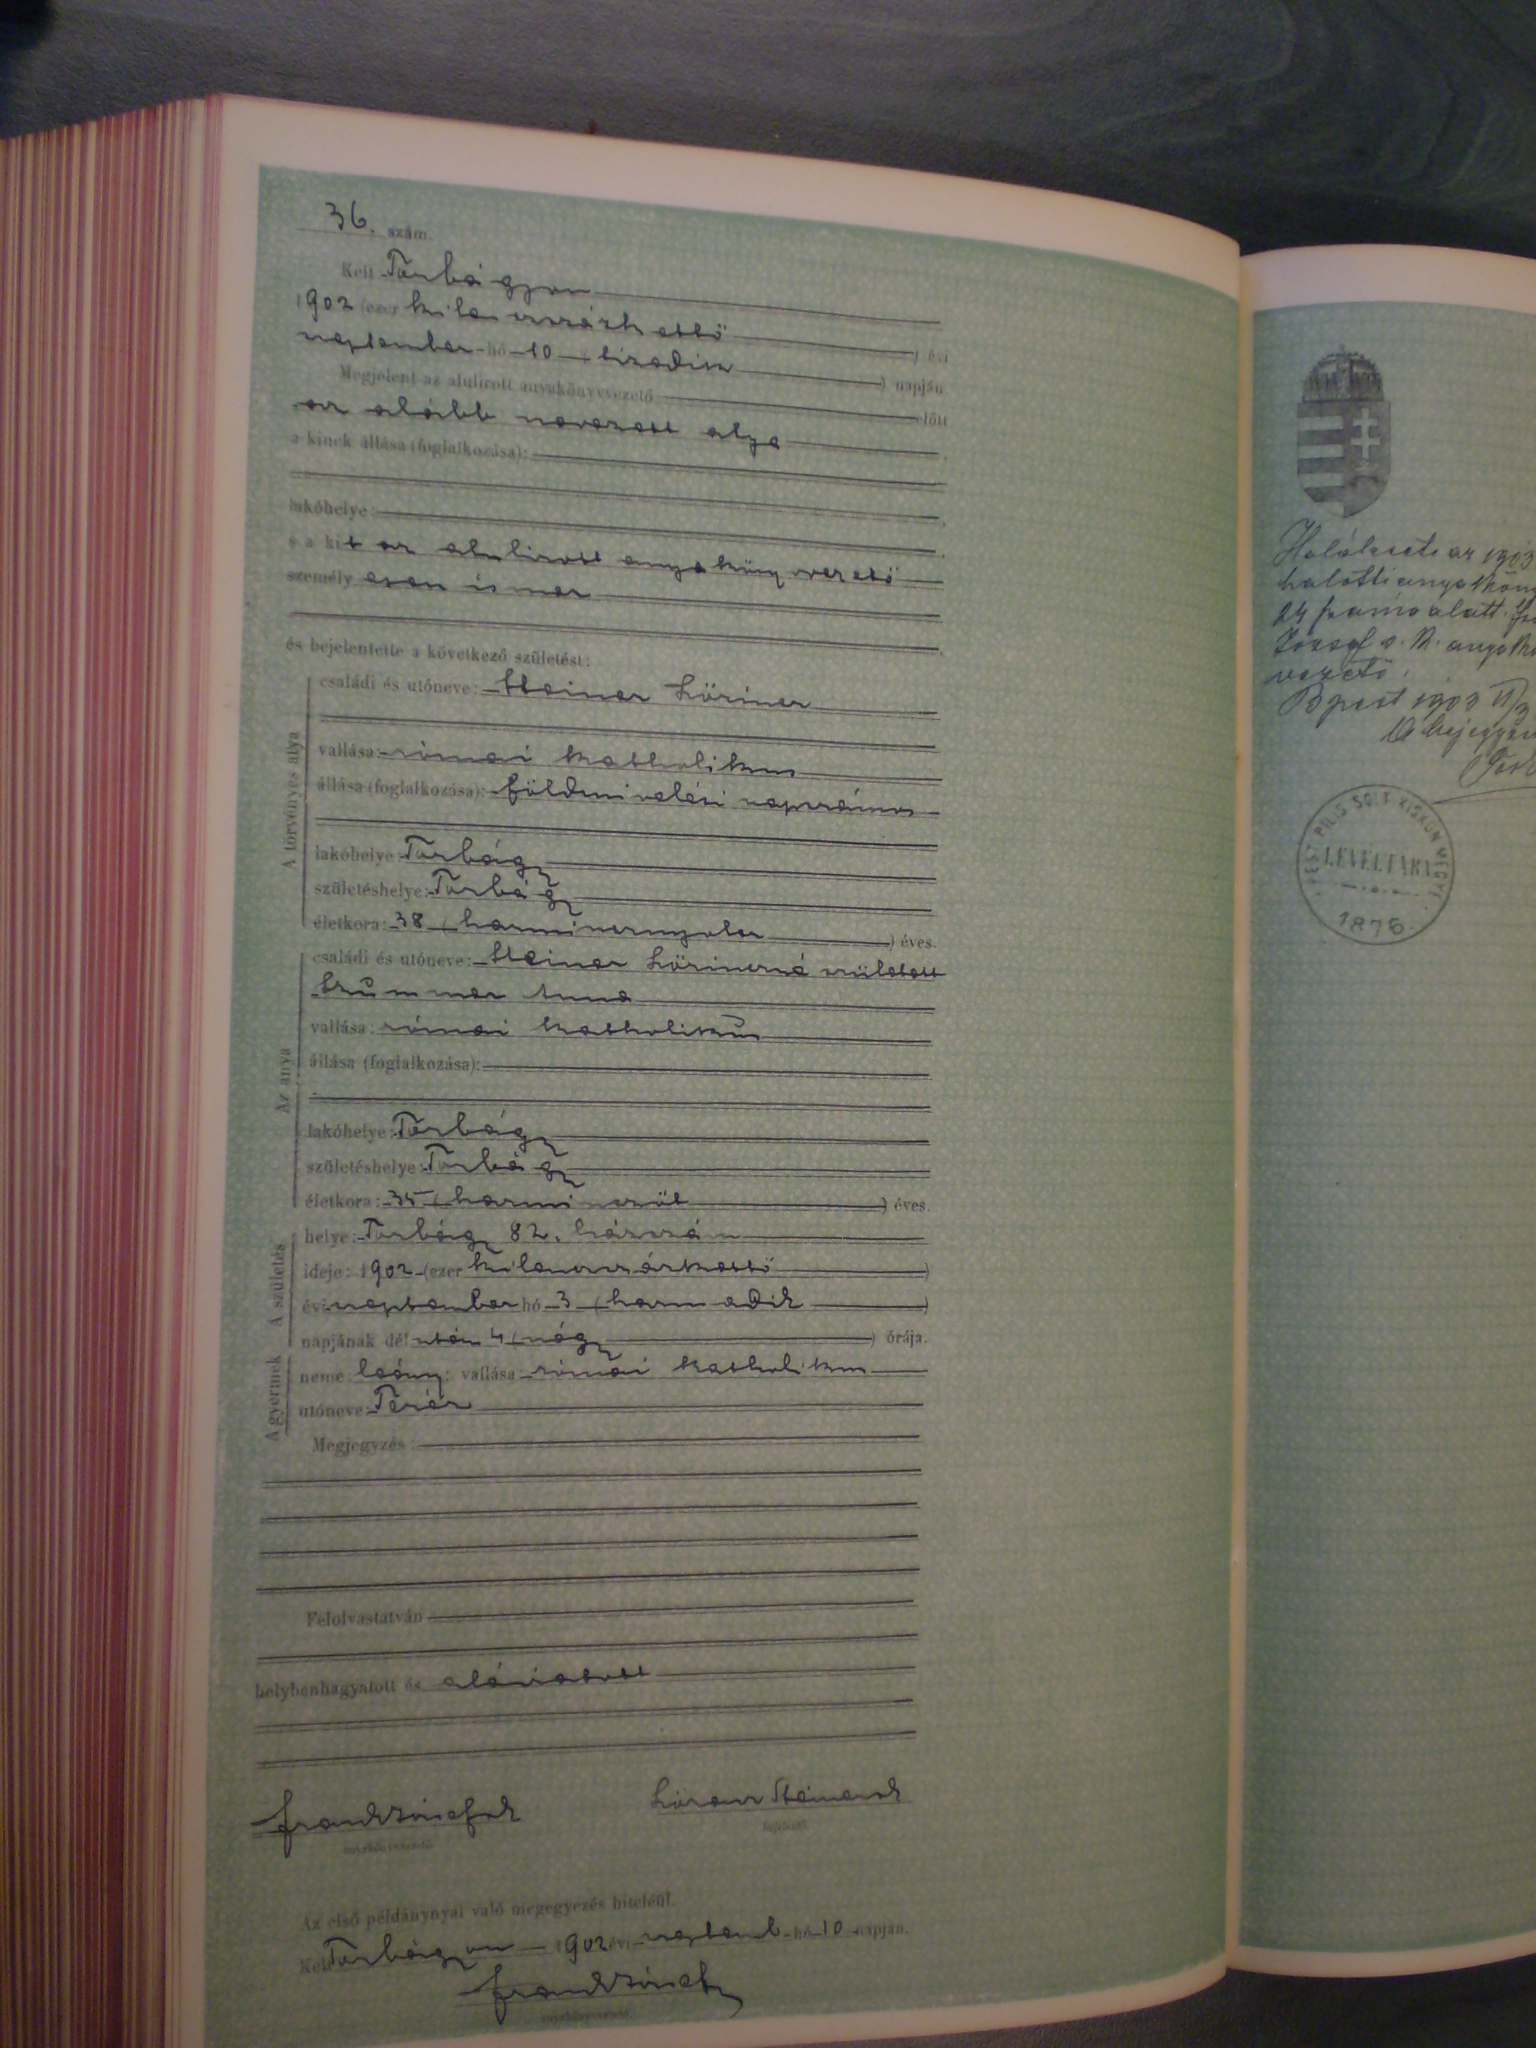 36. szám.
Kelt Torbágyon
1902 (ezer kilenczszázkettő ) évi
september hó 10 (tizedik ) napján
Megjelent az alulírott anyakönyvvezető előtt
az alább nevezett atya
a kinek állása (foglalkozása):
lakóhelye:
s a kit az alulírott anyakönyvvezető
személyesen ismer
és bejelentette a következő születést:
A törvényes atya
családi és utóneve: Steiner Lőrincz
vallása: római katholikus
állása (foglalkozása): földmivelési napszámos
lakóhelye: Torbágy
születéshelye: Torbágy
életkora: 38 (harmincznyolcz ) éves.
Az anya
családi és utóneve: Steiner Lőrinczné született
Anna
vallása: római katholikus
állása (foglalkozása):
lakóhelye: Torbágy
születéshelye: Torbágy
életkora: 35 (harminczöt ) éves.
A születés
helye: Torbágy 82. házszám
ideje: 1902 (ezer kilenczszázkettő )
évi september hó 3 (harmadik )
napjának dél után 4 (négy ) órája.
A gyermek
neme: leány; vallása: római katholikus
utóneve: Teréz
Megjegyzés:
Felolvastatván
helybenhagyatott és aláiratott
anyakönyvvezető
bejelentő
Az első példánynyal való megegyezés hiteléül.
Kelt Torbágyon 1902 évi septemb. hó 10 napján.
anyakönyvvezető
Halálesete az 1903
halotti anyaköny
24 száma alatt.
József a. k. anyakö
vezető.
Bpest 1903
A bejegyzés
PEST PILIS SOLT KISKUN MEGYE
LEVÉLTÁRA
1876